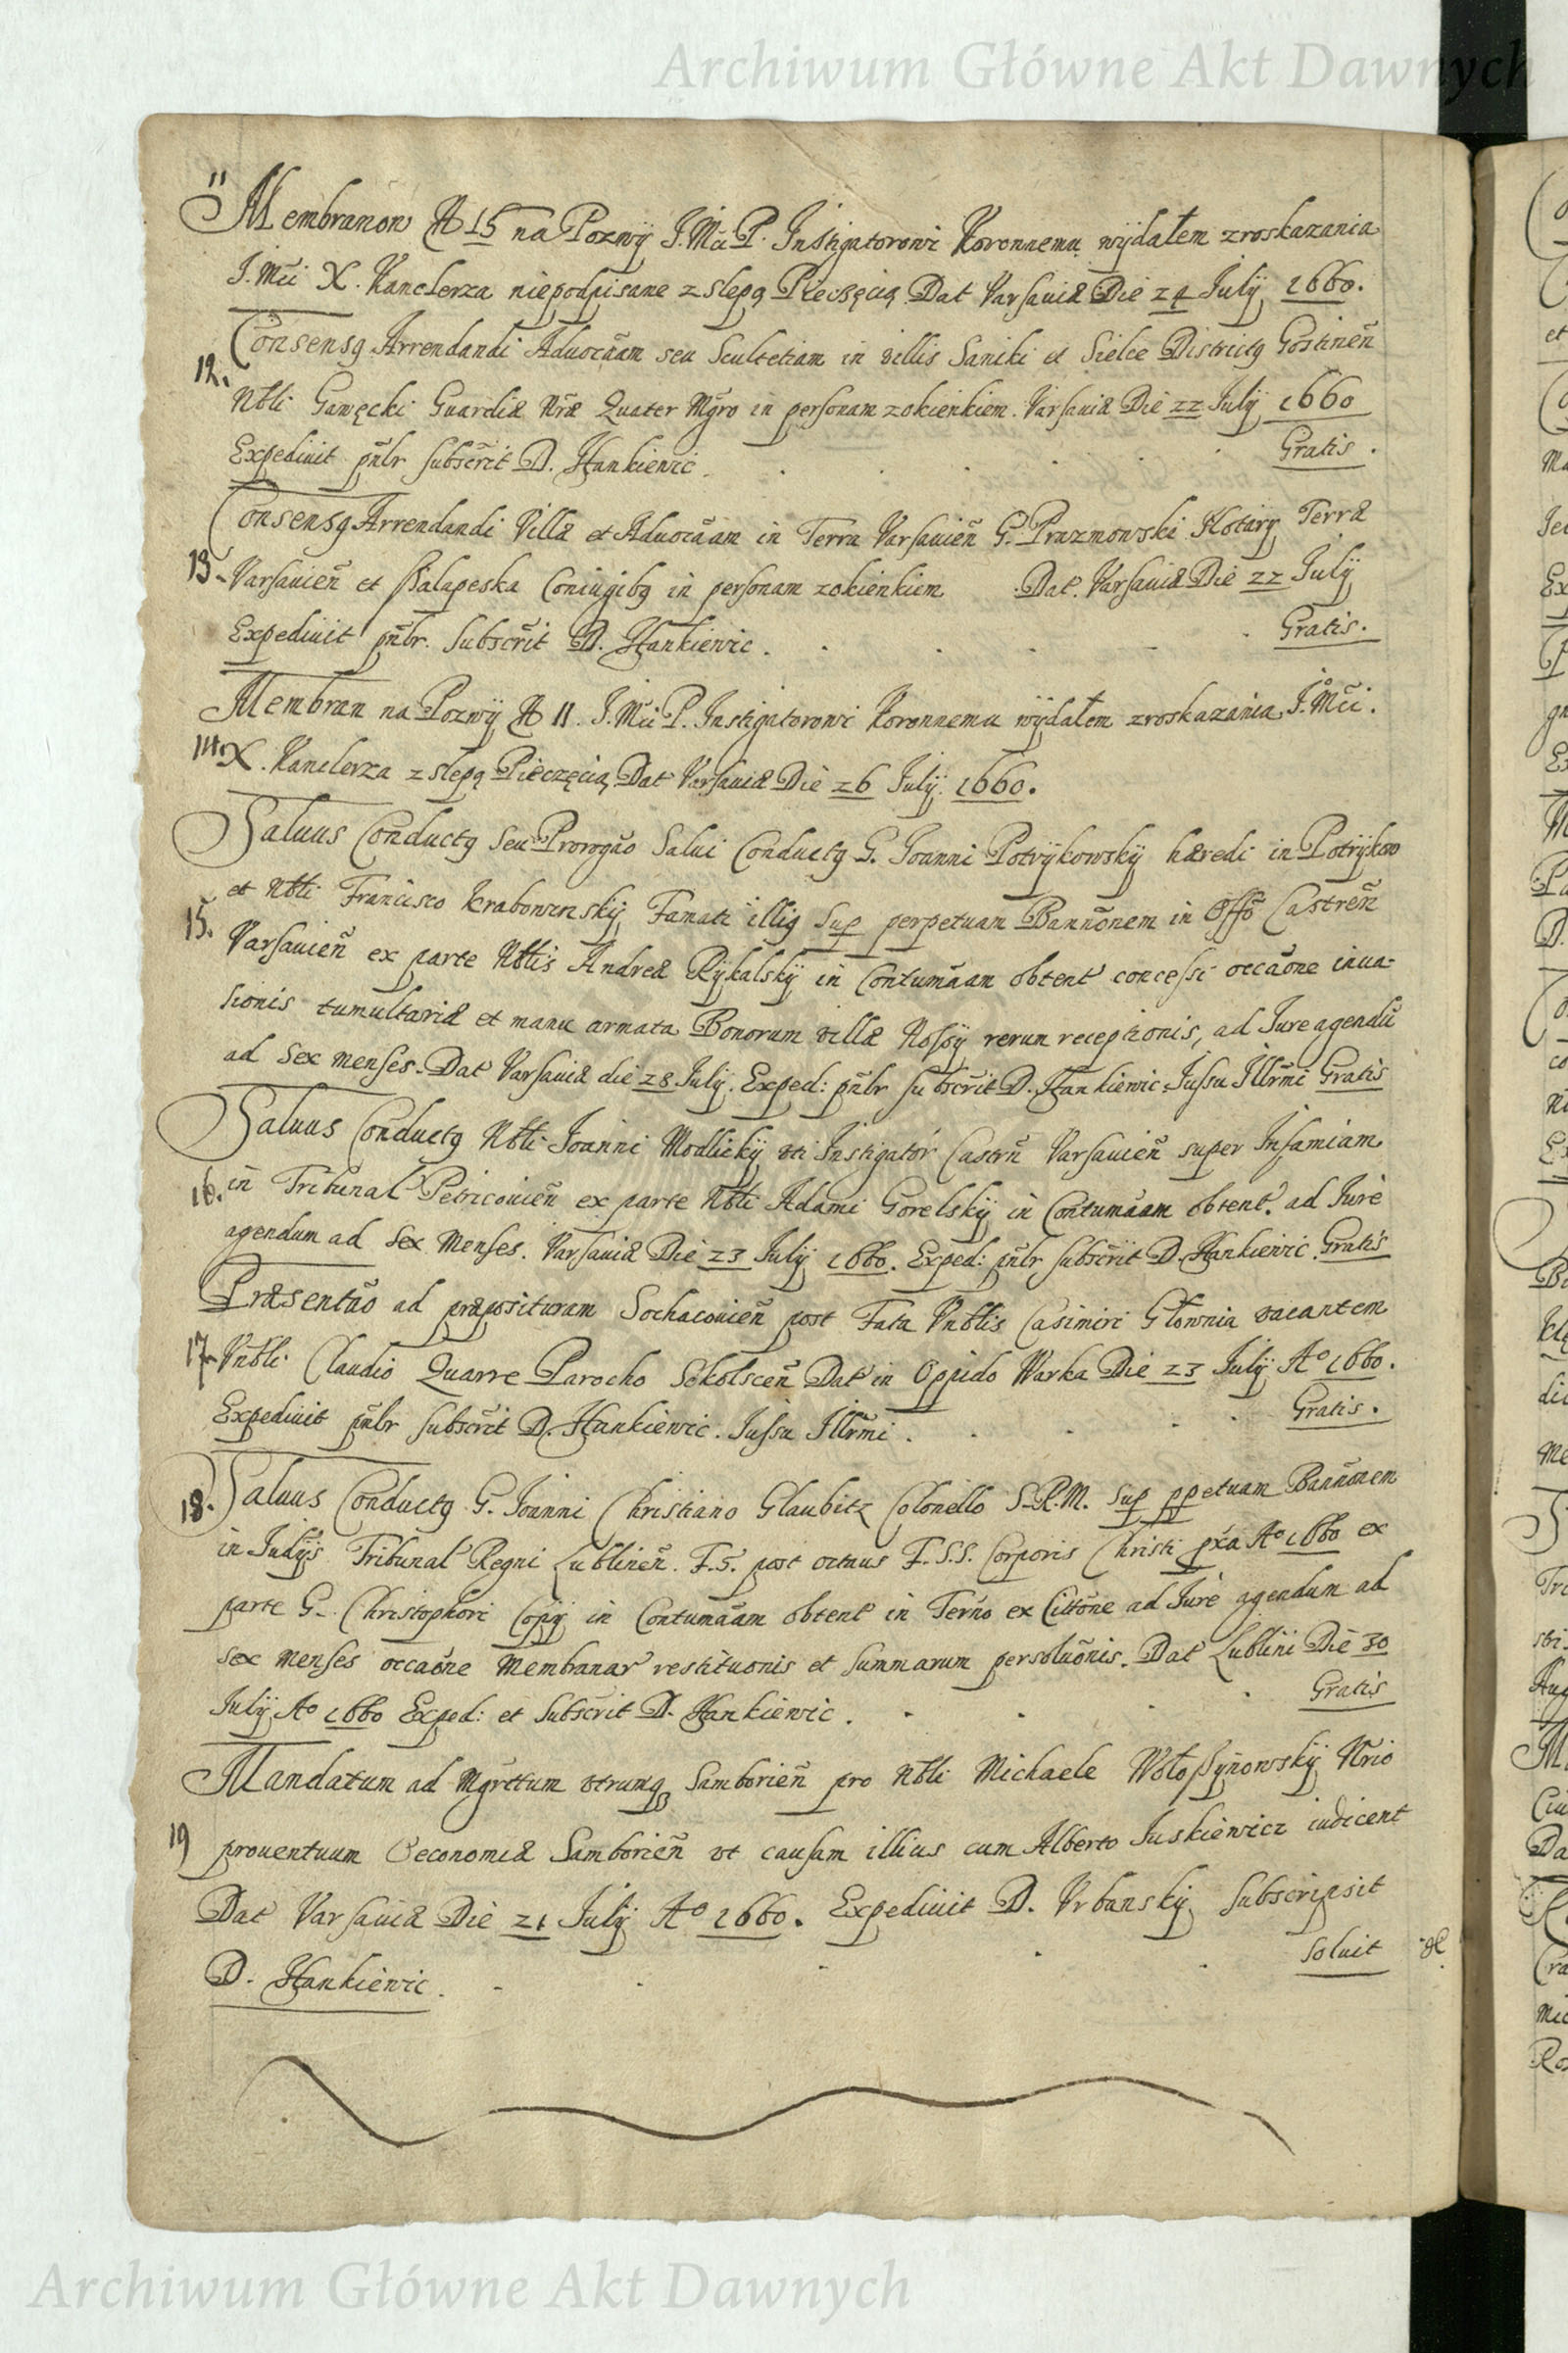 Archiwum Główne Akt Dawnych
11
Membranow N 15 na Pozwÿ J. Mci P. Instigatorowi Koronnemu wÿdałem zroskazania
J. Mci X. Kanclerza niepodpisane z slepą Pieczęcią. Dat Varsaviæ Die 24 Julÿ 1660.
12. Consensq Arrendandi Advocãam seu Scultetiam in villis Saniki et Sielce Districtq Gostineñ
Nbli Gawęcki Guardiæ Nræ Quater Mgro in personam zokienkiem. Varsaviæ Die 22 Julÿ 1660
Expedivit pñlr subscrit D. Hankiewic. Gratis.
Consensq Arrendandi Villæ et Advocãam in Terra Varsavieñ G. Prazmowski Notarÿ Terræ
13. Varsavieñ et Coniugibq in personam zokienkiem Dat. Varsaviæ Die 22 Julÿ
Expedivit pñlr. Subscrit D. Hankiewic. Gratis.
Membran na Pozwÿ N 11. J. Mci P. Instigatorowi Koronnemu wÿdałem zroskazania J. Mci.
14. X. Kanclerza z slepą Pieczęcią, Dat Varsaviæ Die 26 Julÿ. 1660.
Salvus Conductq seu Prorogão Salvi Conductq G. Joanni Potrÿkowskÿ hæredi in Potrÿkow
et Nbli Francisco Famati illiq sup perpetuam Bannõnem in Offõ Castreñ
15. Varsavieñ ex parte Nblis Andreæ Rÿkalskÿ in Contumãam obtent concessi occãone inva-
sionis tumultariæ et manu armata Bonorum villæ rerum receptionis, ad Jure agendũ
ad sex menses. Dat Varsaviæ die 28 Julÿ. Exped: pñlr subscrit D. Hankiewic. Jussu Illrmi Gratis
Salvus Conductq Nbli Joanni Modlickÿ uti Instigator Castrñ Varsavieñ super Infamiam
16. in Tribunal Petricovieñ ex parte Nbli Adami Gorelskÿ in Contumãam obtent. ad Jure
agendum ad sex Menses. Varsaviæ Die 23 Julÿ 1660. Exped: pñlr subscrit D. Hankiewic. Gratis
Præsentão ad præposituram Sochacovieñ post Fata Vnblis Casimiri Głownia vacantem
17. Vnbli Claudio Quarre Parocho Sokolsceñ Dat in Oppido Warka Die 23 Julÿ Aº 1660.
Expedivit pñlr subscrit D. Hankiewic. Jussu Illrmi. Gratis.
18. Salvus Conductq G. Joanni Christiano Glaubitz Colonello S.R.M. sup ppetuam Bannõnem
in Judÿs Tribunal Regni Lublineñ. F. 5. post octavas F. S.S. Corporis Christi pxa Aº 1660 ex
parte G. Christophori in Contumãam obtent in Terno ex Cittõne ad Jure agendum ad
sex menses occaõne Membranar restituonis et summarum persoluõnis. Dat Lublini Die 30
Julÿ Aº 1660 Exped: et subscrit D. Hankiewic. Gratis
Mandatum ad Mgrttum utrumq Samborieñ pro Nbli Michaele Nrio
19 proventuum Oeconomiæ Samborieñ ut causam illius cum Alberto Juskiewicz iudicent
Dat Varsaviæ Die 21 Julÿ Aº 1660. Expedivit D. Vrbanskÿ subscripsit
D. Hankiewic. soluit
Archiwum Główne Akt Dawnych